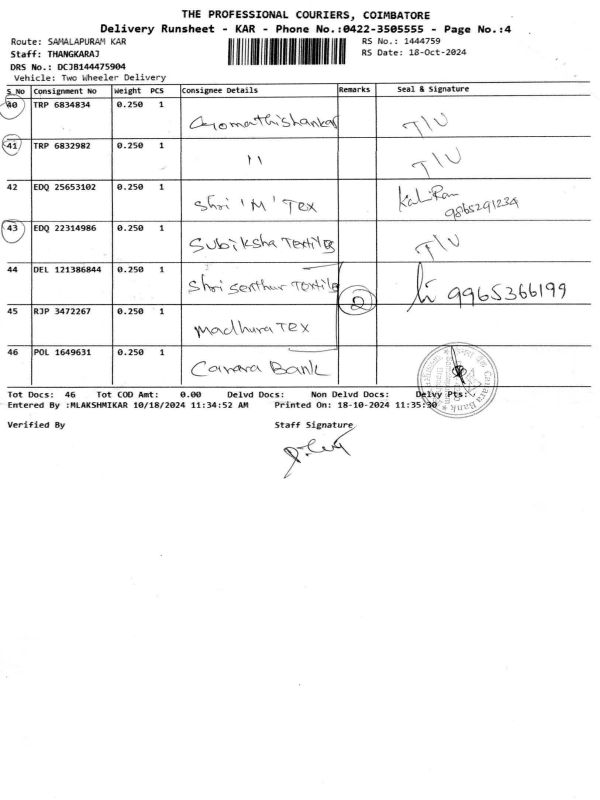 THE PROFESSIONAL COURIERS, COIMBATORE
Delivery Runsheet - KAR - Phone No.:0422-3505555 - Page No.:4
Route: SAMALAPURAM KAR RS No.: 1444759
Staff: THANGKARAJ RS Date: 18-Oct-2024
DRS No.: DCJB144475904
Vehicle: Two Wheeler Delivery
S No Consignment No Weight PCS Consignee Details Remarks Seal & Signature
40 TRP 6834834 0.250 1 Gomathishankar T/U
41 TRP 6832982 0.250 1 " T/U
42 EDQ 25653102 0.250 1 Shri 'M' Tex 9865291234
43 EDQ 22314986 0.250 1 Subiksha Textiles T/U
44 DEL 121386844 0.250 1 Shri Senthur Textiles 2 9965366199
45 RJP 3472267 0.250 1 Madhura Tex
46 POL 1649631 0.250 1 Canara Bank Canara Bank
Tot Docs: 46 Tot COD Amt: 0.00 Delvd Docs: Non Delvd Docs: Delvy Pts:
Entered By :MLAKSHMIKAR 10/18/2024 11:34:52 AM Printed On: 18-10-2024 11:35:30
Verified By Staff Signature